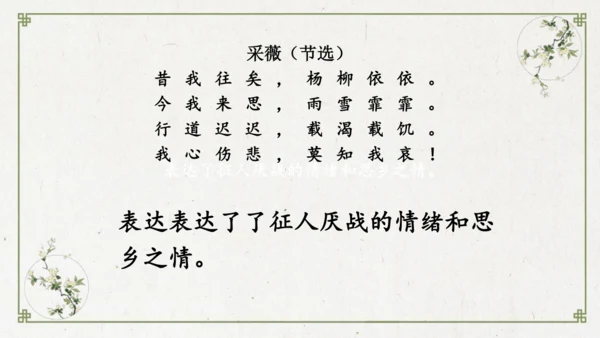 采薇（节选）
昔我往矣，杨柳依依。
今我来思，雨雪霏霏。
行道迟迟，载渴载饥。
我心伤悲，莫知我哀！
表达了征人厌战的情绪和思乡之情。
表达表达了了征人厌战的情绪和思
乡之情。